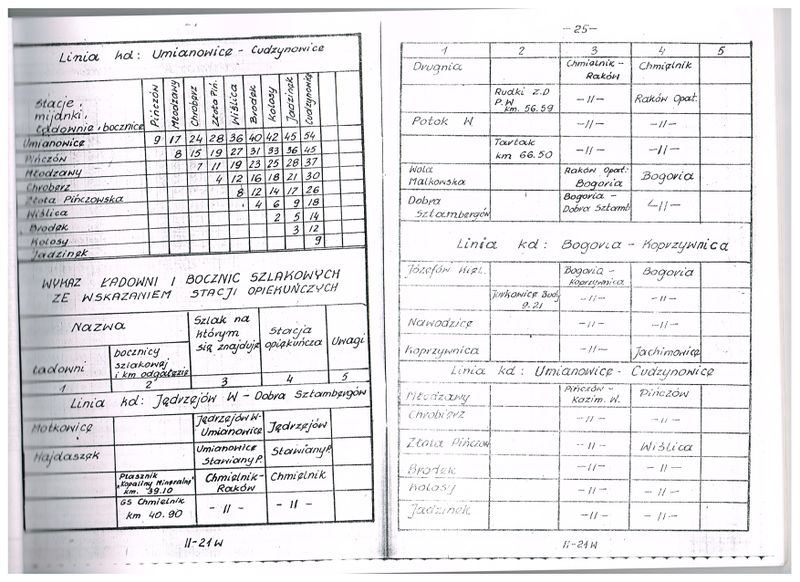 Linia kd: Umianowice - Cudzynowice
Stacje, mijanki, ładownie, bocznice | Pińczów | Młodzawy | Chroberz | Złota Piń. | Wiślica | Brodek | Kolosy | Jadzinek | Cudzynowice
Umianowice 9 17 24 28 36 40 42 45 54
Pińczów 8 15 19 27 31 33 36 45
Młodzawy 7 11 19 23 25 28 37
Chroberz 4 12 16 18 21 30
Złota Pińczowska 8 12 14 17 26
Wiślica 4 6 9 18
Brodek 2 5 14
Kolosy 3 12
Jadzinek 9
WYKAZ ŁADOWNI I BOCZNIC SZLAKOWYCH
ZE WSKAZANIEM STACJI OPIEKUŃCZYCH
Nazwa | Szlak na którym się znajduje | Stacja opiekuńcza | Uwagi
Ładowni | bocznicy szlakowej i km odgałęzie
1 2 3 4 5
Linia kd: Jędrzejów W - Dobra Sztambergów
Motkowice | Jędrzejów W- Umianowice | Jędrzejów
Hajdaszek | Umianowice Stawiany P. | Stawiany P.
Ptasznik "Kopaliny Mineralny" km. 39.10 | Chmielnik- Raków | Chmielnik
GS Chmielnik km 40.90 | -II- | -II-
II-21W
-25-
1 2 3 4 5
Drugnia | Chmielnik - Raków | Chmielnik
Rudki Z.D P.W km. 56.59 | -II- | Raków Opat.
Potok W | -II- | -II-
Tartak km 66.50 | -II- | -II-
Wola Malkowska | Raków Opat. Bogoria | Bogoria
Dobra Sztambergów | Bogoria - Dobra Sztamb. | -II-
Linia kd: Bogoria - Koprzywnica
Józefów Kiel. | Bogoria - Koprzywnica | Bogoria
Jurkowice Budy 9.21 | -II- | -II-
Nawodzice | -II- | -II-
Koprzywnica | Jachimowice
Linia kd: Umianowice - Cudzynowice
Młodzawy | Pińczów - Kazim. W. | Pińczów
Chrobierz | -II- | -II-
Złota Pińczow | -II- | Wiślica
Brodek | -II- | -II-
Kolosy | -II- | -II-
Jadzinek | -II- | -II-
II-21W